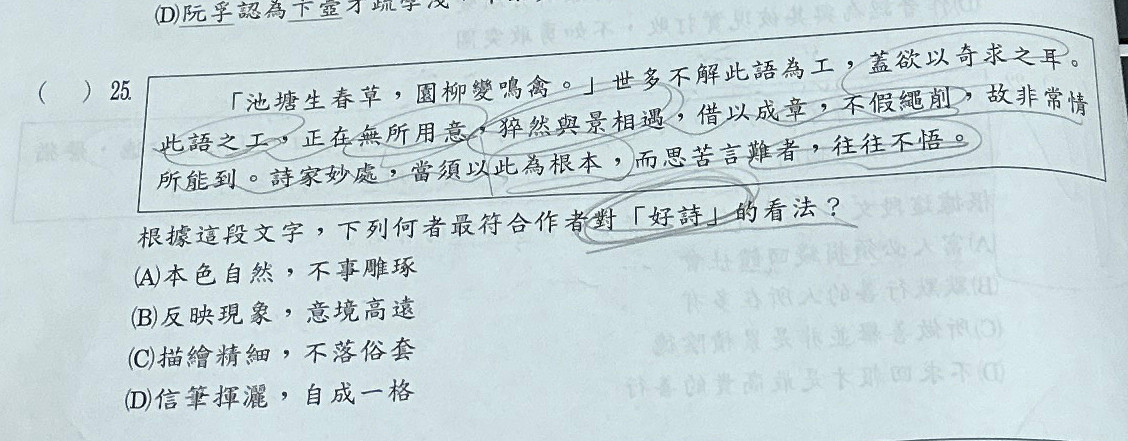 (D)阮孚認為卞壼才疏學淺
( ) 25.
「池塘生春草,園柳變鳴禽。」世多不解此語為工,蓋欲以奇求之耳。
此語之工,正在無所用意,猝然與景相遇,借以成章,不假繩削,故非常情
所能到。詩家妙處,當須以此為根本,而思苦言難者,往往不悟。
根據這段文字,下列何者最符合作者對「好詩」的看法?
(A)本色自然,不事雕琢
(B)反映現象,意境高遠
(C)描繪精細,不落俗套
(D)信筆揮灑,自成一格